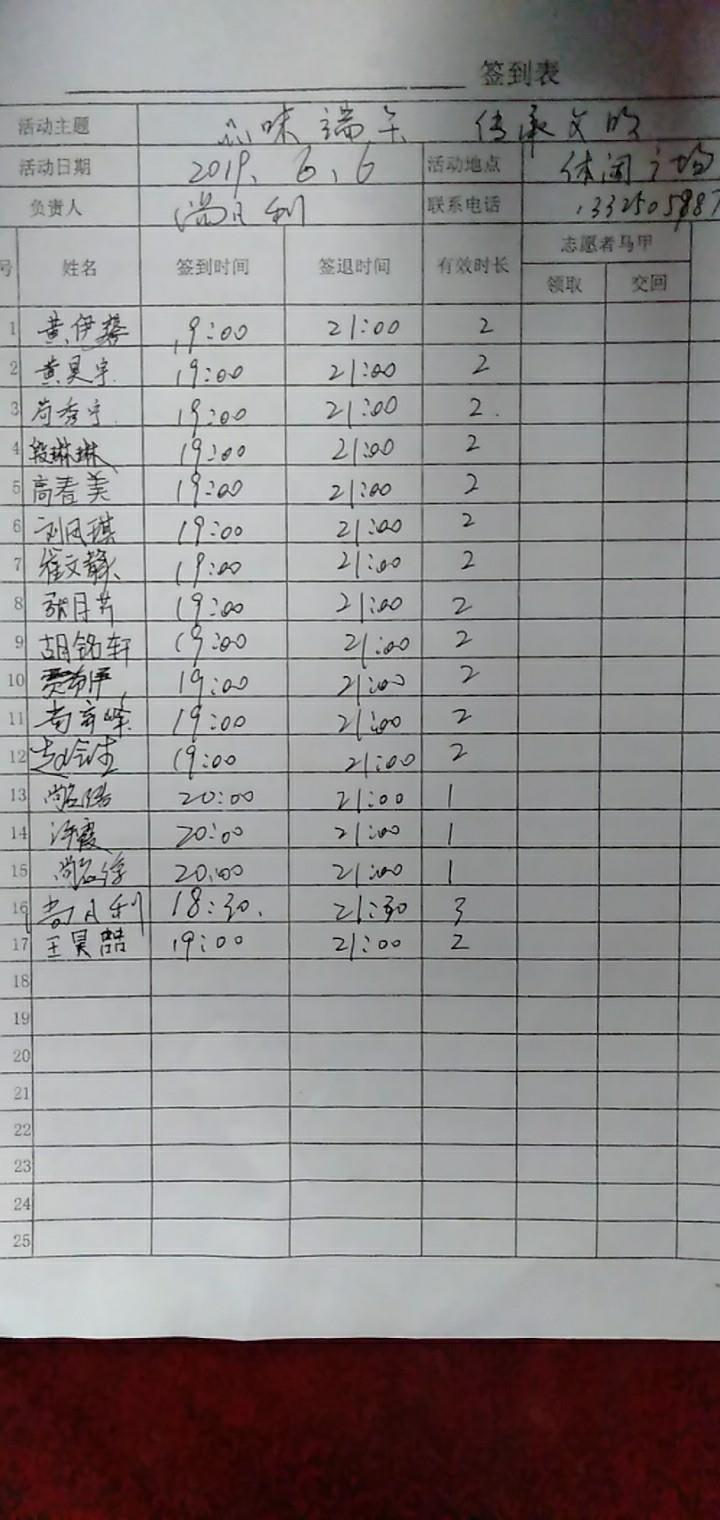 签到表
活动主题 品味端午 传承文明
活动日期 2019.6.6 活动地点 休闲广场
负责人 联系电话
号 姓名 签到时间 签退时间 有效时长 志愿者马甲
领取 交回
1 黄伊 19:00 21:00 2
2 黄昊宇 19:00 21:00 2
3 苟秀宇 19:00 21:00 2
4 段琳琳 19:00 21:00 2
5 高春美 19:00 21:00 2
6 刘凤琪 19:00 21:00 2
7 崔文静 19:00 21:00 2
8 张月芳 19:00 21:00 2
9 胡铭轩 19:00 21:00 2
10 19:00 21:00 2
11 19:00 21:00 2
12 19:00 21:00 2
13 20:00 21:00 1
14 许霞 20:00 21:00 1
15 20:00 21:00 1
16 18:30 21:30 3
17 王昊喆 19:00 21:00 2
18
19
20
21
22
23
24
25